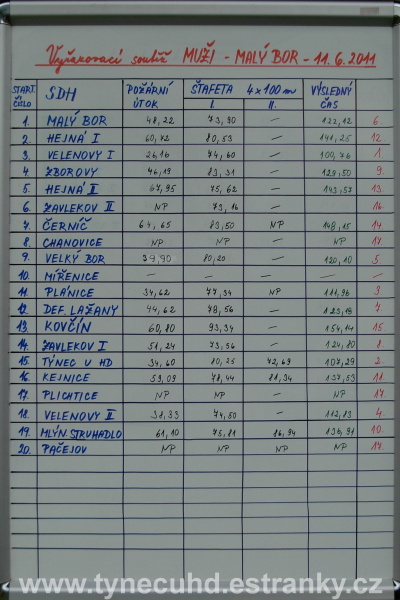 Vyřazovací soutěž MUŽI - MALÝ BOR - 11.6.2011
START. ČÍSLO SDH POŽÁRNÍ ÚTOK ŠTAFETA 4x100m I. II. VÝSLEDNÝ ČAS
1. MALÝ BOR 48,22 73,90 — 122,12 6.
2. HEJNÁ I 60,72 80,53 — 141,25 12.
3. VELENOVY I 26,16 74,60 — 100,76 1.
4. ZBOROVY 46,19 83,31 — 129,50 9.
5. HEJNÁ II 67,95 75,62 — 143,57 13.
6. ZAVLEKOV II NP 73,16 — — 16.
7. ČERNÍČ 64,65 83,50 NP 148,15 14.
8. CHANOVICE NP NP — NP 17.
9. VELKÝ BOR 39,90 80,20 — 120,10 5.
10. MÍŘENICE — — — — —
11. PLÁNICE 34,62 77,34 NP 111,96 3.
12. DEF. LAŽANY 44,62 78,56 — 123,18 7.
13. KOVČÍN 60,80 93,34 — 154,14 15.
14. ZAVLEKOV I 51,24 73,56 — 124,80 8.
15. TÝNEC U HD 34,60 80,25 72,69 107,29 2.
16. KEJNICE 59,09 78,44 81,34 137,53 11.
17. PLICHTICE NP NP — NP 17.
18. VELENOVY II 38,33 74,50 — 112,83 4.
19. MLÝN. STRUHADLO 61,10 75,81 86,94 136,91 10.
20. PAČEJOV NP NP NP NP 17.
www.tynecuhd.estranky.cz